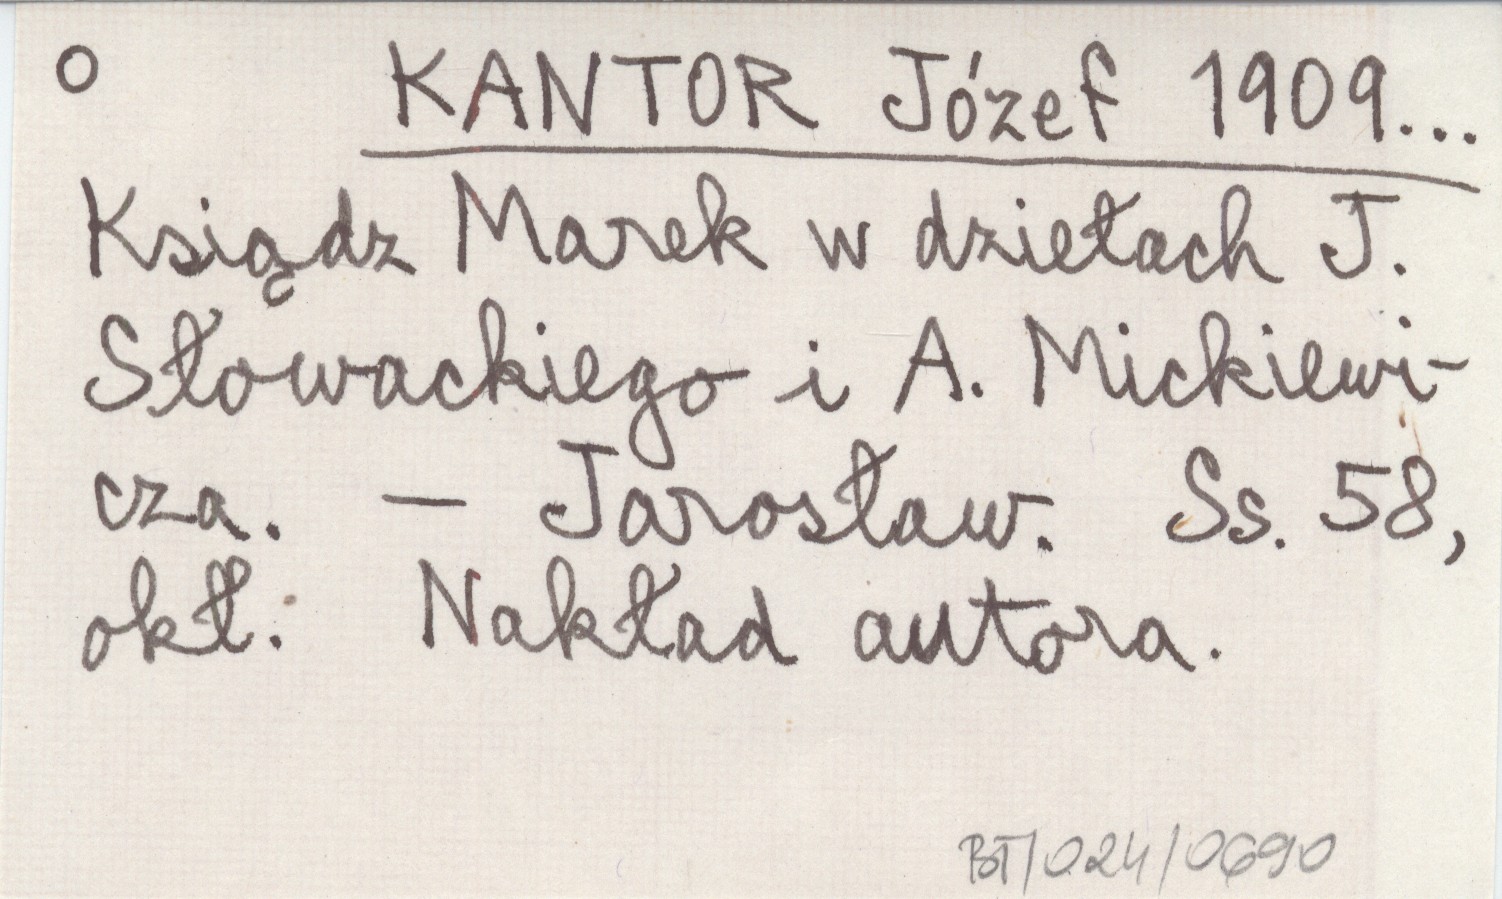 O KANTOR Józef 1909...
Ksiądz Marek w dziełach J.
Słowackiego i A. Mickiewi-
cza. — Jarosław. Ss. 58,
okł. Nakład autora.
BT/024/0690